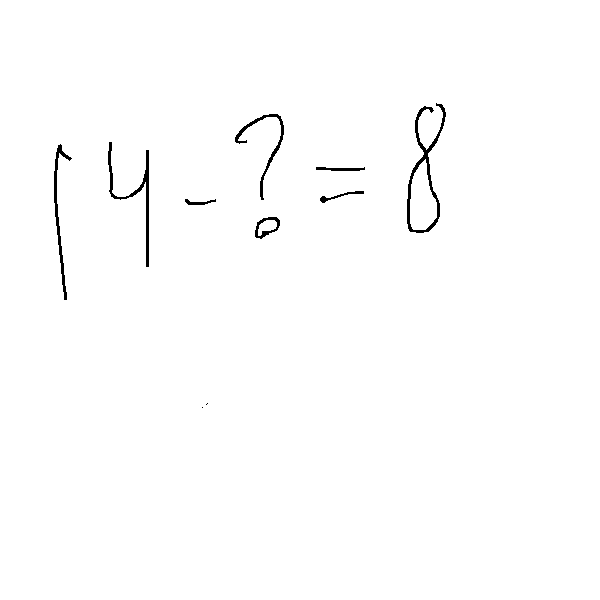 14 - ? = 8